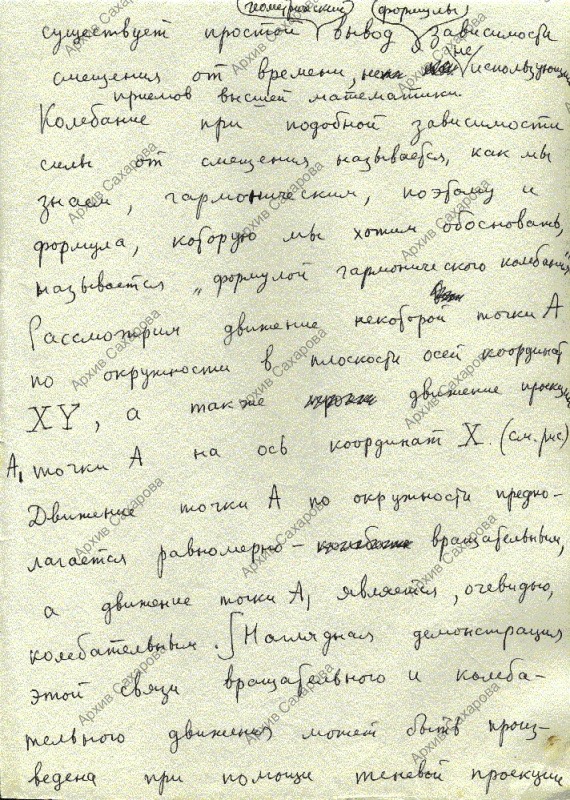 геометрический формулы
существует простой вывод зависимости
смещения от времени, не использующий
приемов высшей математики.
Колебание при подобной зависимости
силы от смещения называется, как мы
знаем, гармоническим, поэтому и
формула, которую мы хотим обосновать,
называется „формулой гармонического колебания"
Рассмотрим движение некоторой точки А
по окружности в плоскости осей координат
XY, а также движение проекции
А₁ точки А на ось координат X. (см. рис)
Движение точки А по окружности предпо-
лагается равномерно – вращательным,
а движение точки А₁ является, очевидно,
колебательным. Наглядная демонстрация
этой связи вращательного и колеба-
тельного движения может быть произ-
ведена при помощи теневой проекции
Архив Сахарова